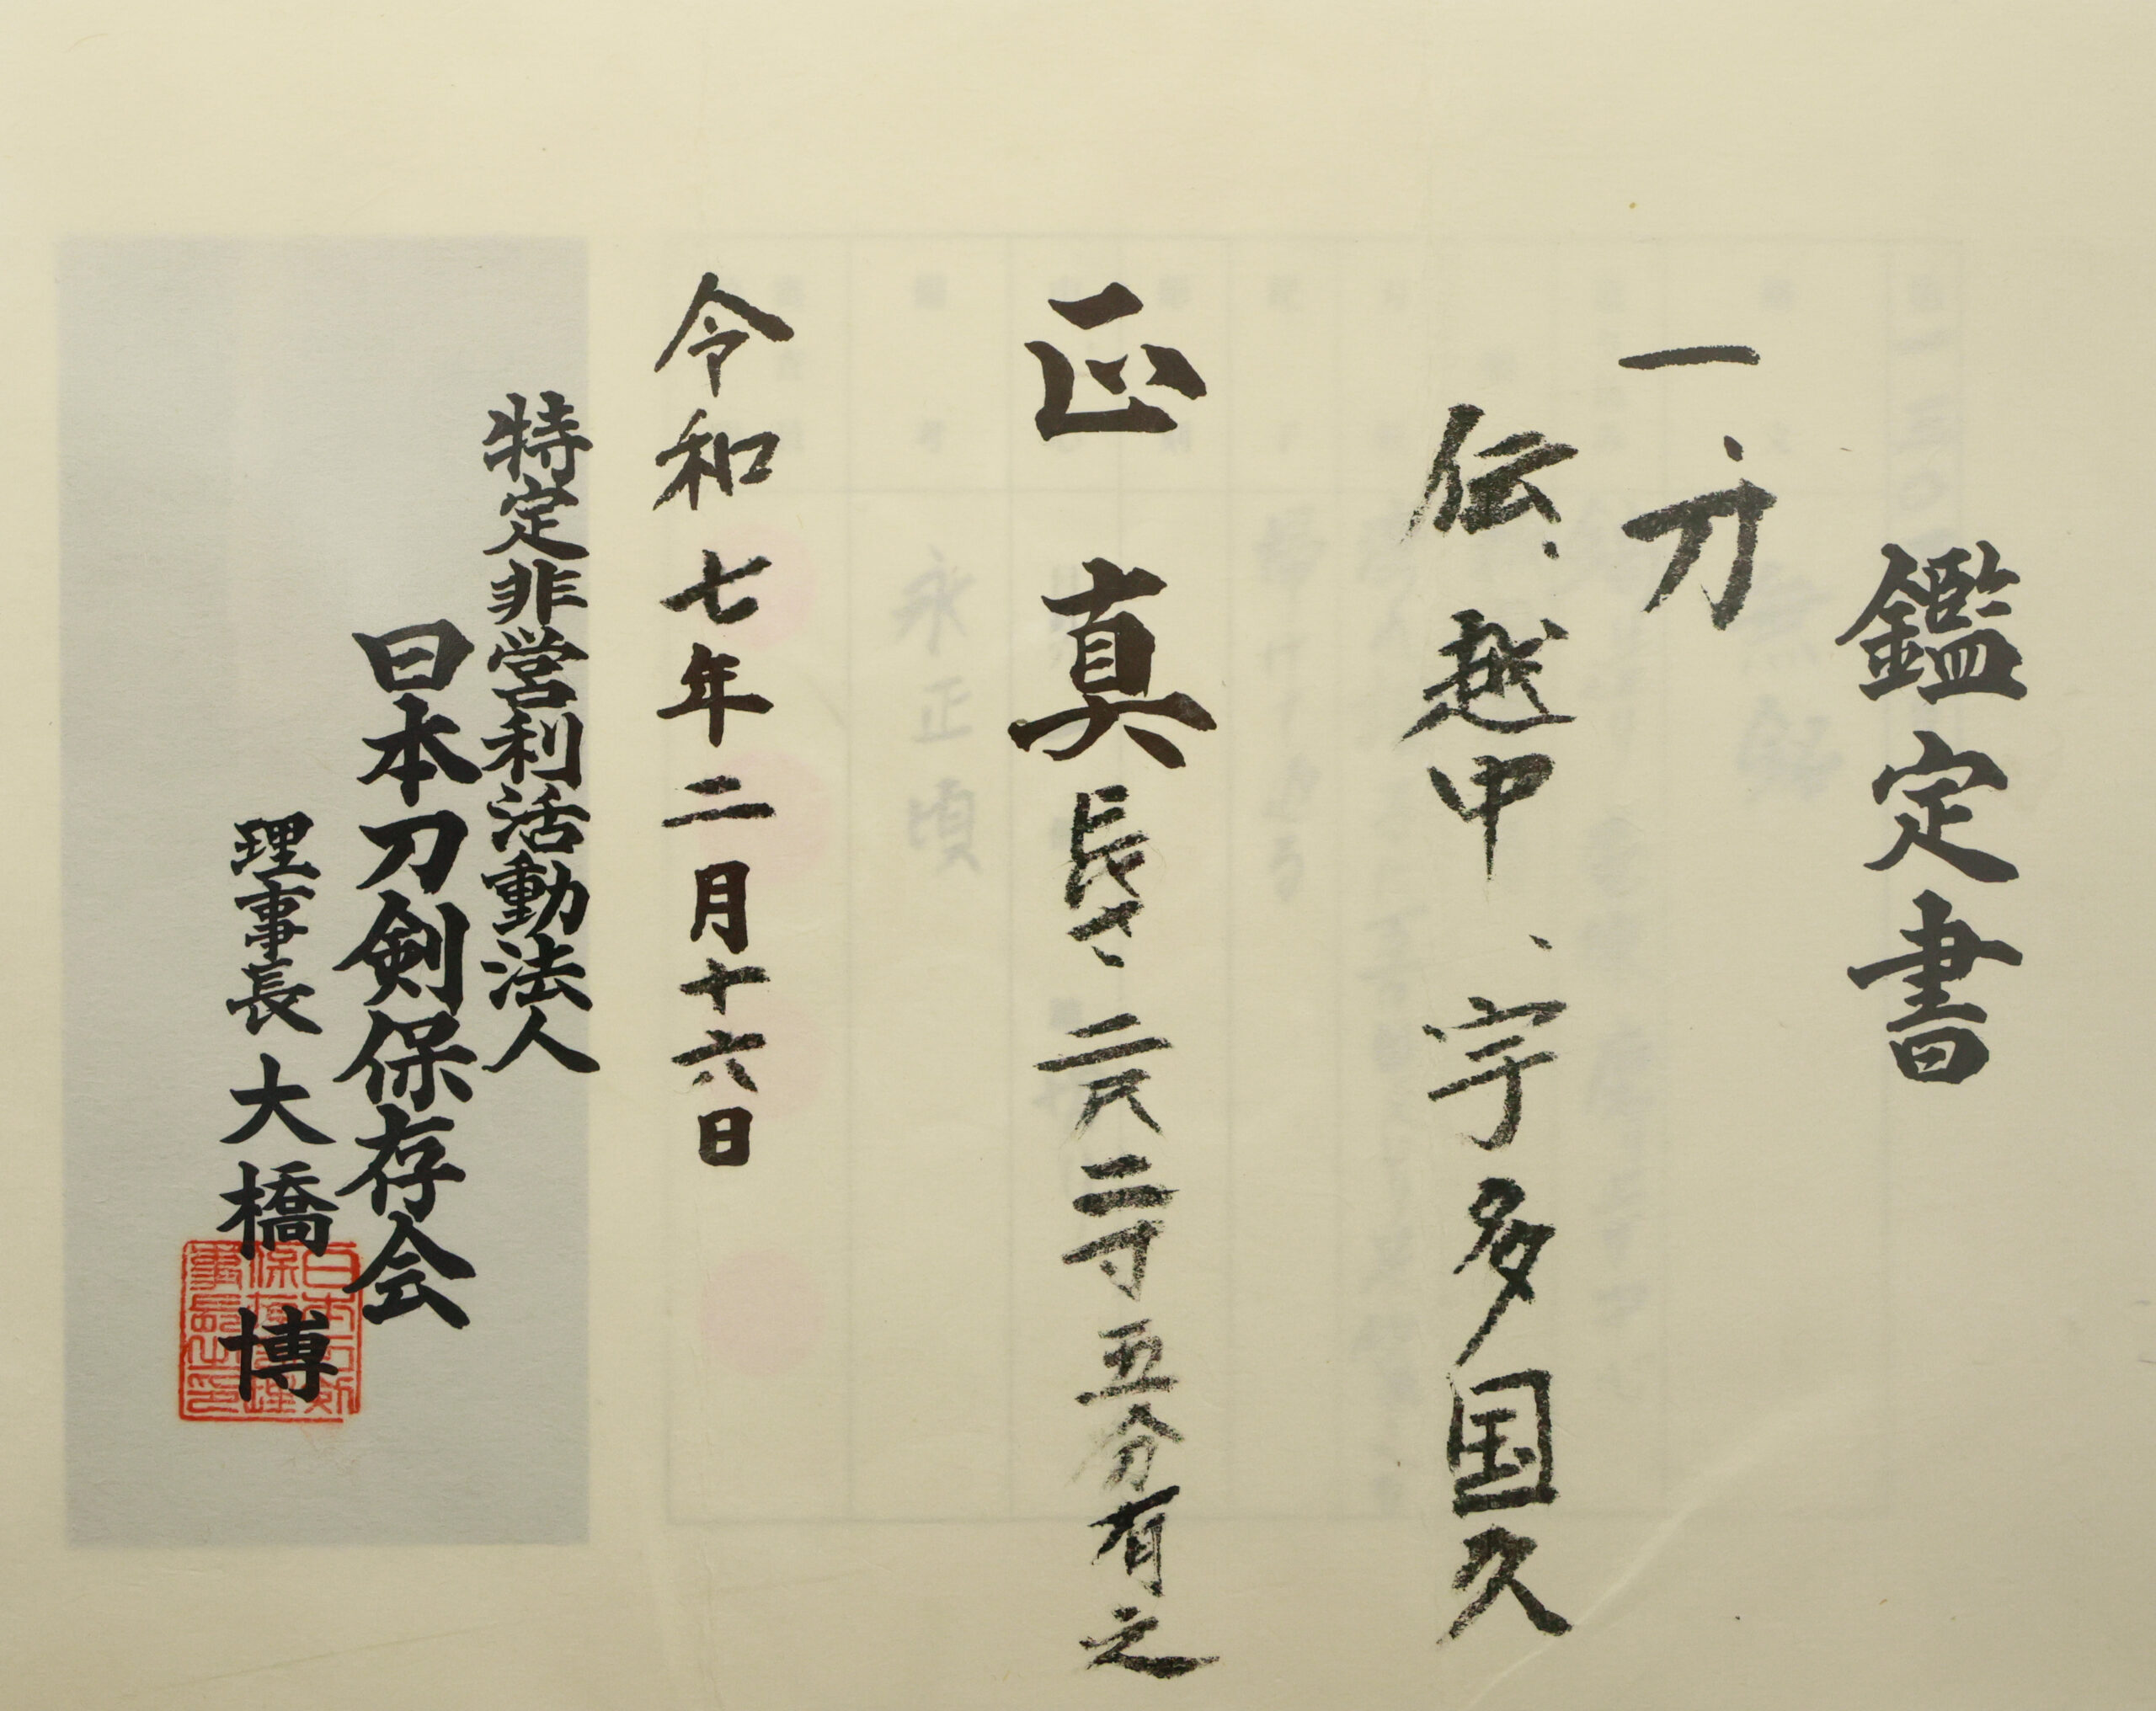 鑑定書
一、刀
伝、越中、宇多国久
正真長さ、二尺二寸五分有之
令和七年二月十六日
特定非営利活動法人
日本刀剣保存会
理事長 大橋 博
永正頃